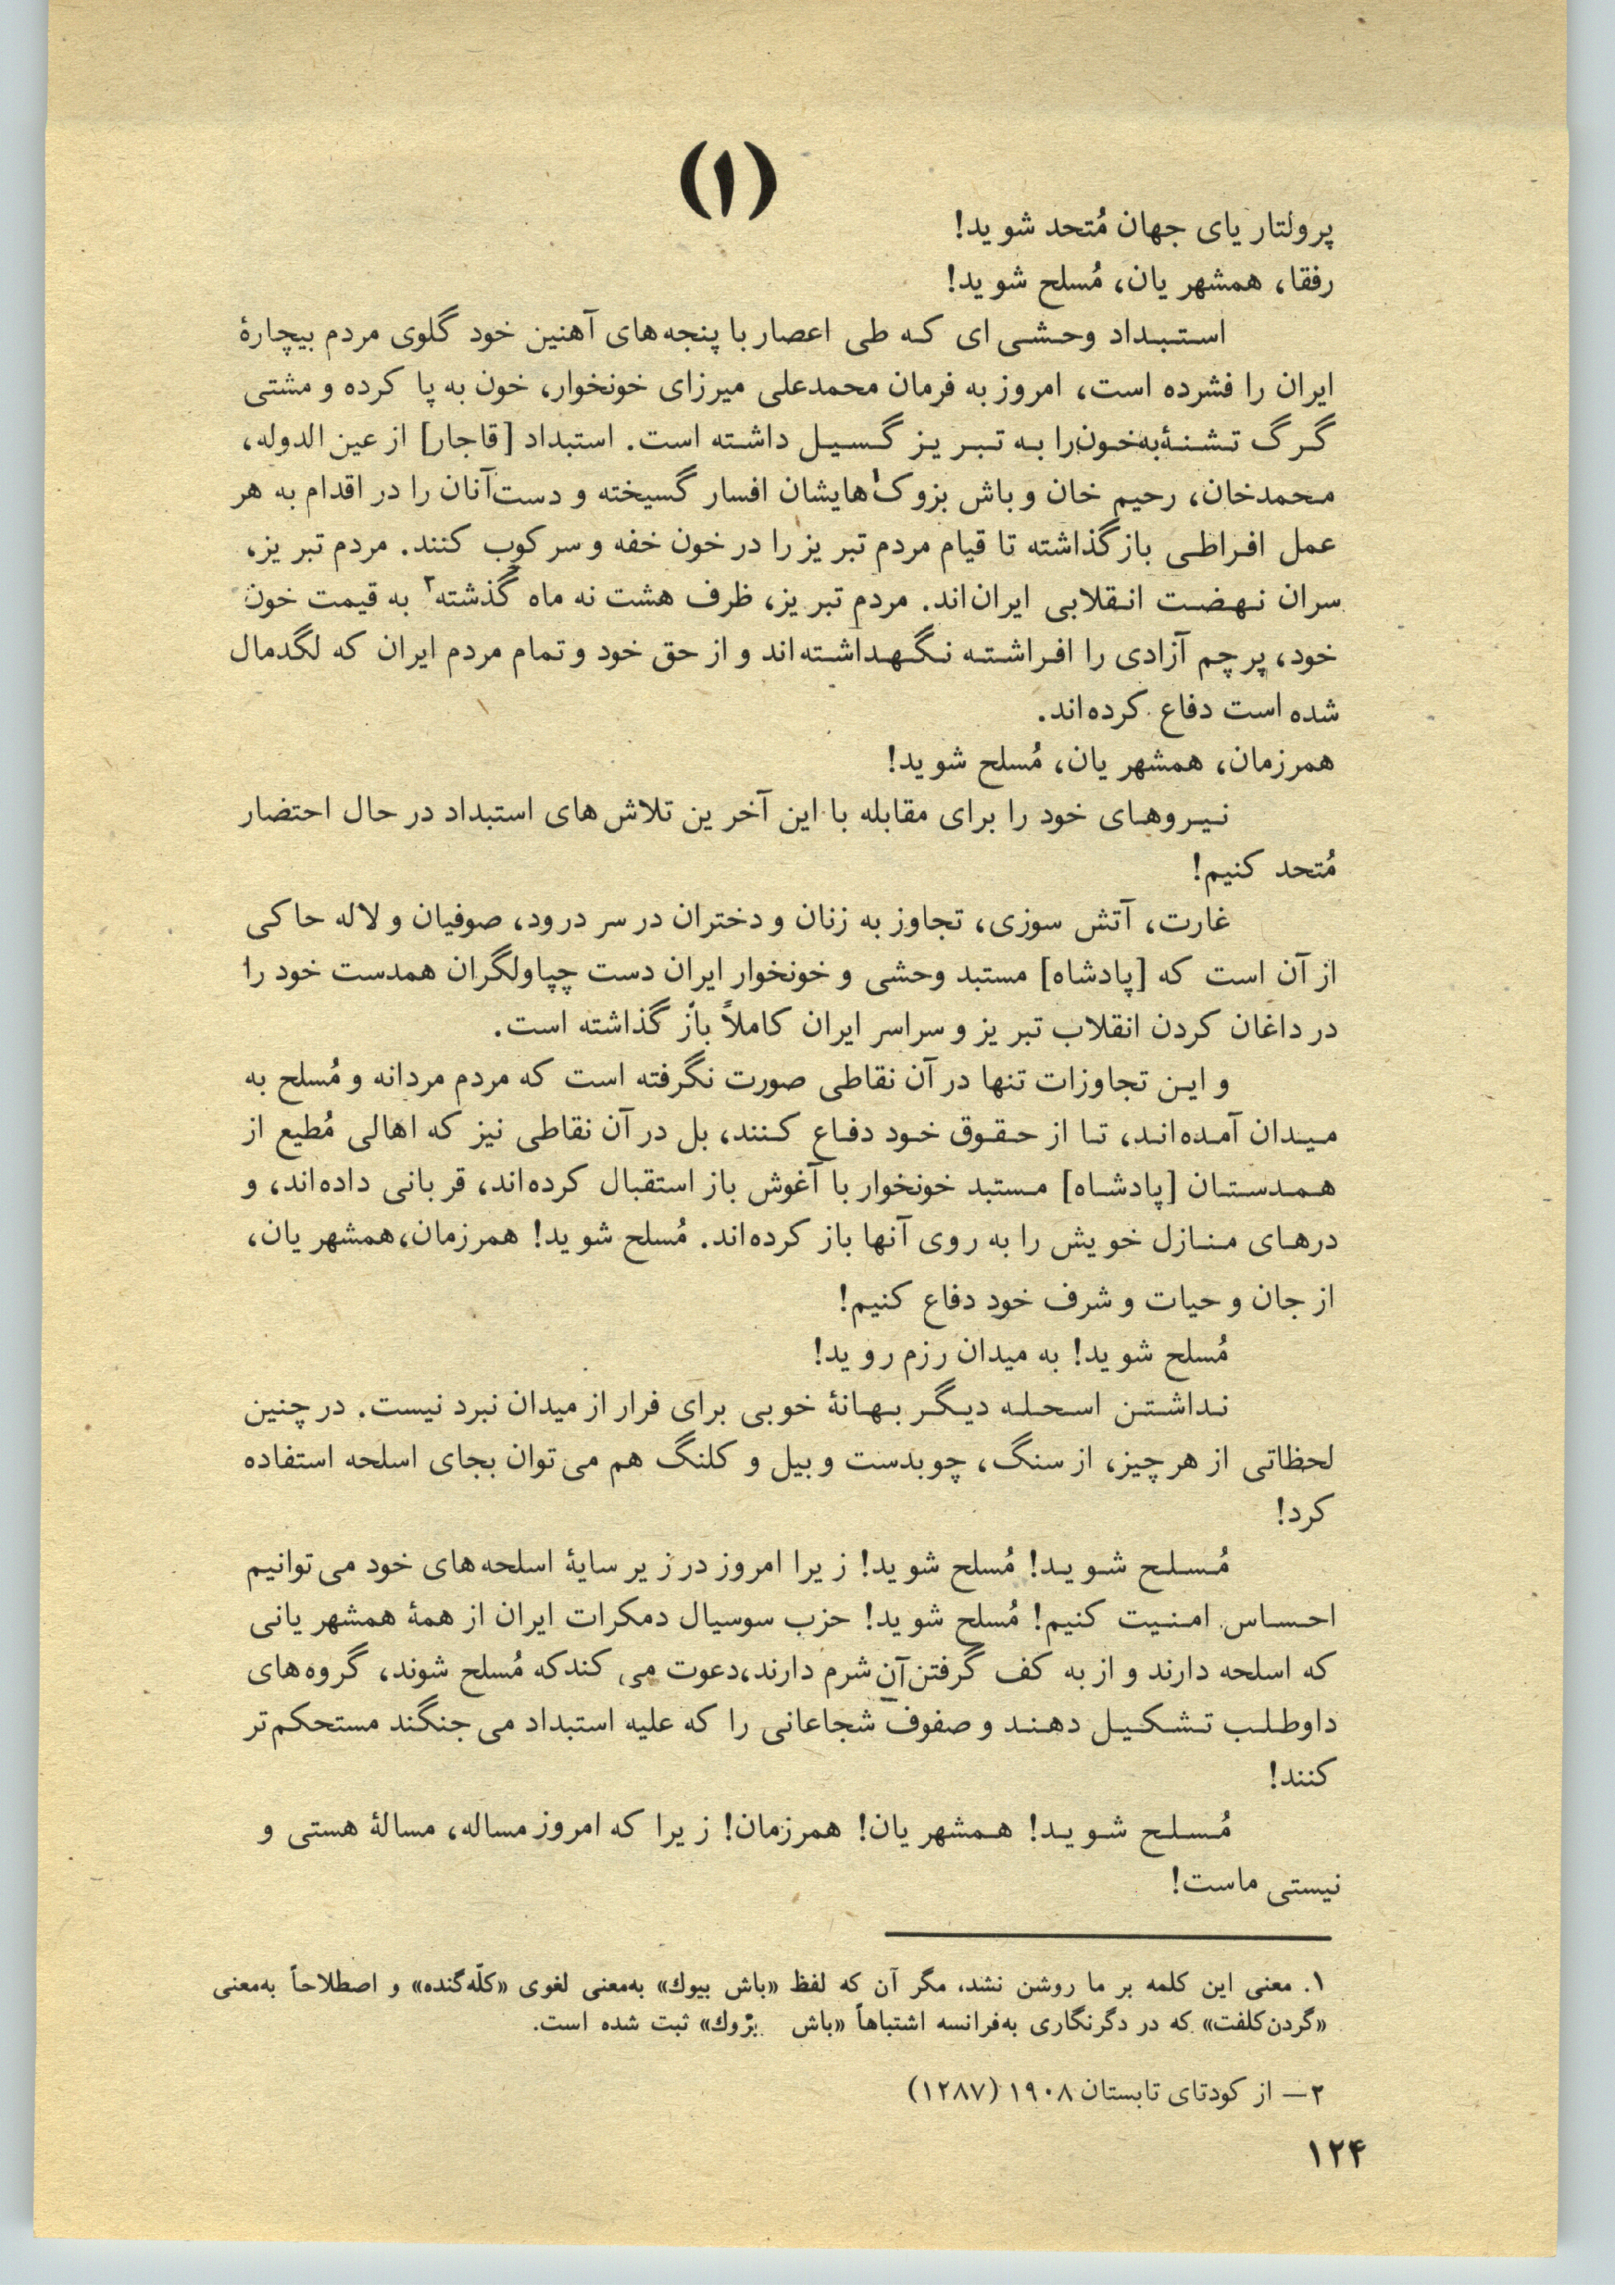 (۱)
پرولتاریای جهان مُتحد شوید!
رفقا، همشهریان، مُسلح شوید!
استبداد وحشی ای که طی اعصار با پنجه‌های آهنین خود گلوی مردم بیچارهٔ
ایران را فشرده است، امروز به فرمان محمدعلی میرزای خونخوار، خون به پا کرده و مشتی
گرگ تشنهٔ به‌خون را به تبریز گسیل داشته است. استبداد [قاجار] از عین الدوله،
محمدخان، رحیم خان و باش بزوک۱هایشان افسار گسیخته و دست آنان را در اقدام به هر
عمل افراطی باز گذاشته تا قیام مردم تبریز را در خون خفه و سرکوب کنند. مردم تبریز،
سران نهضت انقلابی ایران‌اند. مردم تبریز، ظرف هشت نه ماه گذشته۲ به قیمت خون
خود، پرچم آزادی را افراشته نگهداشته‌اند و از حق خود و تمام مردم ایران که لگدمال
شده است دفاع کرده‌اند.
همرزمان، همشهریان، مُسلح شوید!
نیروهای خود را برای مقابله با این آخرین تلاش‌های استبداد در حال احتضار
مُتحد کنیم!
غارت، آتش سوزی، تجاوز به زنان و دختران در سر درود، صوفیان و لاله حاکی
از آن است که [پادشاه] مستبد وحشی و خونخوار ایران دست چپاولگران همدست خود را
در داغان کردن انقلاب تبریز و سراسر ایران کاملاً باز گذاشته است.
و این تجاوزات تنها در آن نقاطی صورت نگرفته است که مردم مردانه و مُسلح به
میدان آمده‌اند، تا از حقوق خود دفاع کنند، بل در آن نقاطی نیز که اهالی مُطیع از
همدستان [پادشاه] مستبد خونخوار با آغوش باز استقبال کرده‌اند، قربانی داده‌اند، و
درهای منازل خویش را به روی آنها باز کرده‌اند. مُسلح شوید! همرزمان، همشهریان،
از جان و حیات و شرف خود دفاع کنیم!
مُسلح شوید! به میدان رزم روید!
نداشتن اسحله دیگر بهانهٔ خوبی برای فرار از میدان نبرد نیست. در چنین
لحظاتی از هر چیز، از سنگ، چوبدست و بیل و کلنگ هم می‌توان بجای اسلحه استفاده
کرد!
مُسلح شوید! مُسلح شوید! زیرا امروز در زیر سایهٔ اسلحه‌های خود می‌توانیم
احساس امنیت کنیم! مُسلح شوید! حزب سوسیال دمکرات ایران از همهٔ همشهریانی
که اسلحه دارند و از به کف گرفتن آن شرم دارند، دعوت می کند که مُسلح شوند، گروه‌های
داوطلب تشکیل دهند و صفوف شجاعانی را که علیه استبداد می‌جنگند مستحکم‌تر
کنند!
مُسلح شوید! همشهریان! همرزمان! زیرا که امروز مساله، مسالهٔ هستی و
نیستی ماست!
۱. معنی این کلمه بر ما روشن نشد، مگر آن که لفظ «باش بیوك» به‌معنی لغوی «کلّه‌گنده» و اصطلاحاً به‌معنی
«گردن‌کلفت» که در دگرنگاری به‌فرانسه اشتباهاً «باش بزوك» ثبت شده است.
۲— از کودتای تابستان ۱۹۰۸ (۱۲۸۷)
۱۲۴